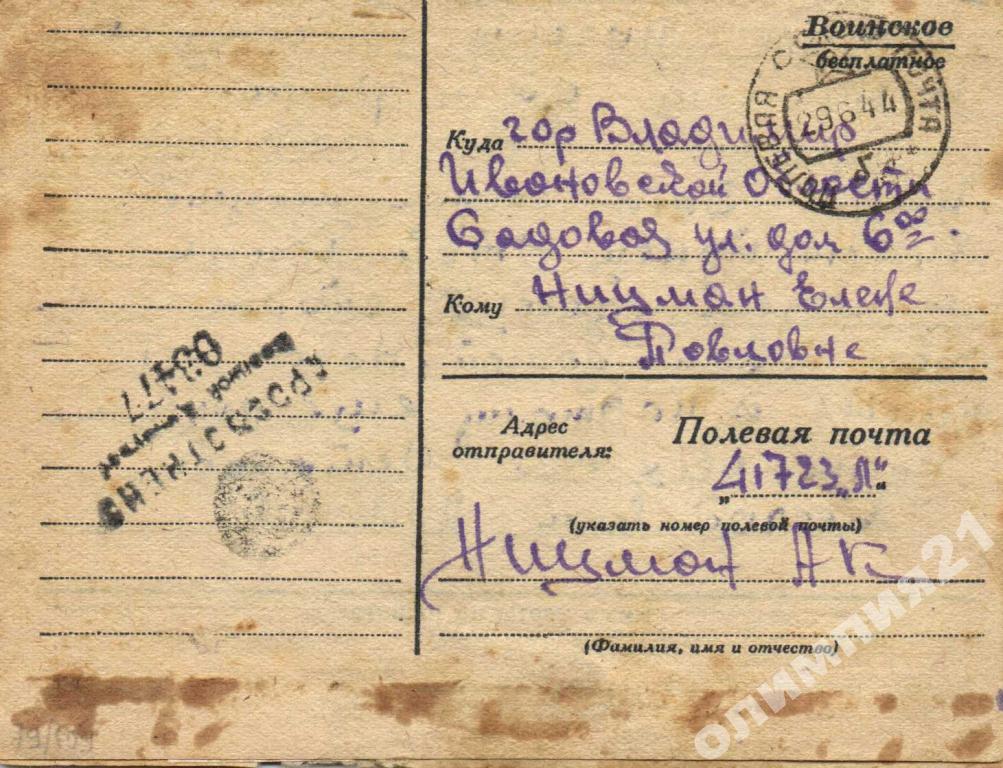 Воинское
бесплатное
ПОЛЕВАЯ ПОЧТА
29 6 44
Куда гор Владимир
Ивановской Области
Садовая ул. дом 6
Кому Ницман Елене
Павловне
Адрес
отправителя:
Полевая почта
„41723„Л“
(указать номер полевой почты)
Ницман А К
(Фамилия, имя и отчество)
ПРОСМОТРЕНО
Военной Цензурой
олимпия21